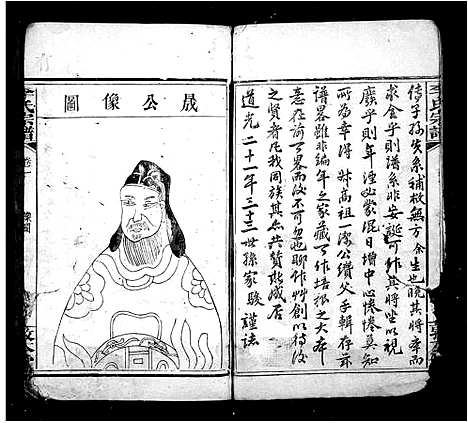 李氏宗譜
傳子孫失系補救無方余生也晚其將聽而
求全乎則譜系非妄誕可作其將坐以視
廢乎則年湮必蒙混日增中心惓惓莫知
為幸得 高祖一公纘父手輯存
譜畧雖非編年之家藏可作培根之大本
意在前可畧而後不可忽也聊作草創以待後
之賢者凡我同族其亦共贊成焉
道光二十一年三十三世孫家駿謹誌
晟公像圖
李氏宗譜
卷一
像圖